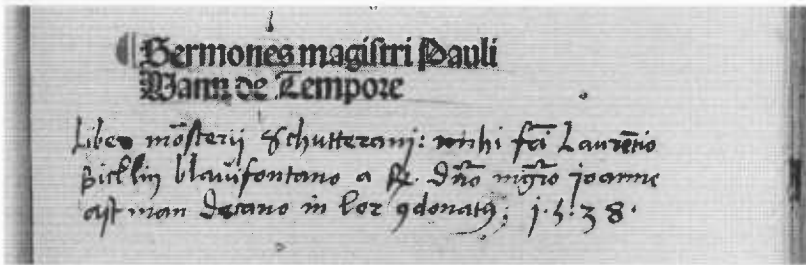 Sermones magistri Pauli
Wann de Tempore
Liber mōsterij Schutterani: mihi frī Laurētio
Bicklin blawfontano a R. dn̄o mgr̄o joanne
man decano in lor ꝯdonatꝰ; 1·5·38·